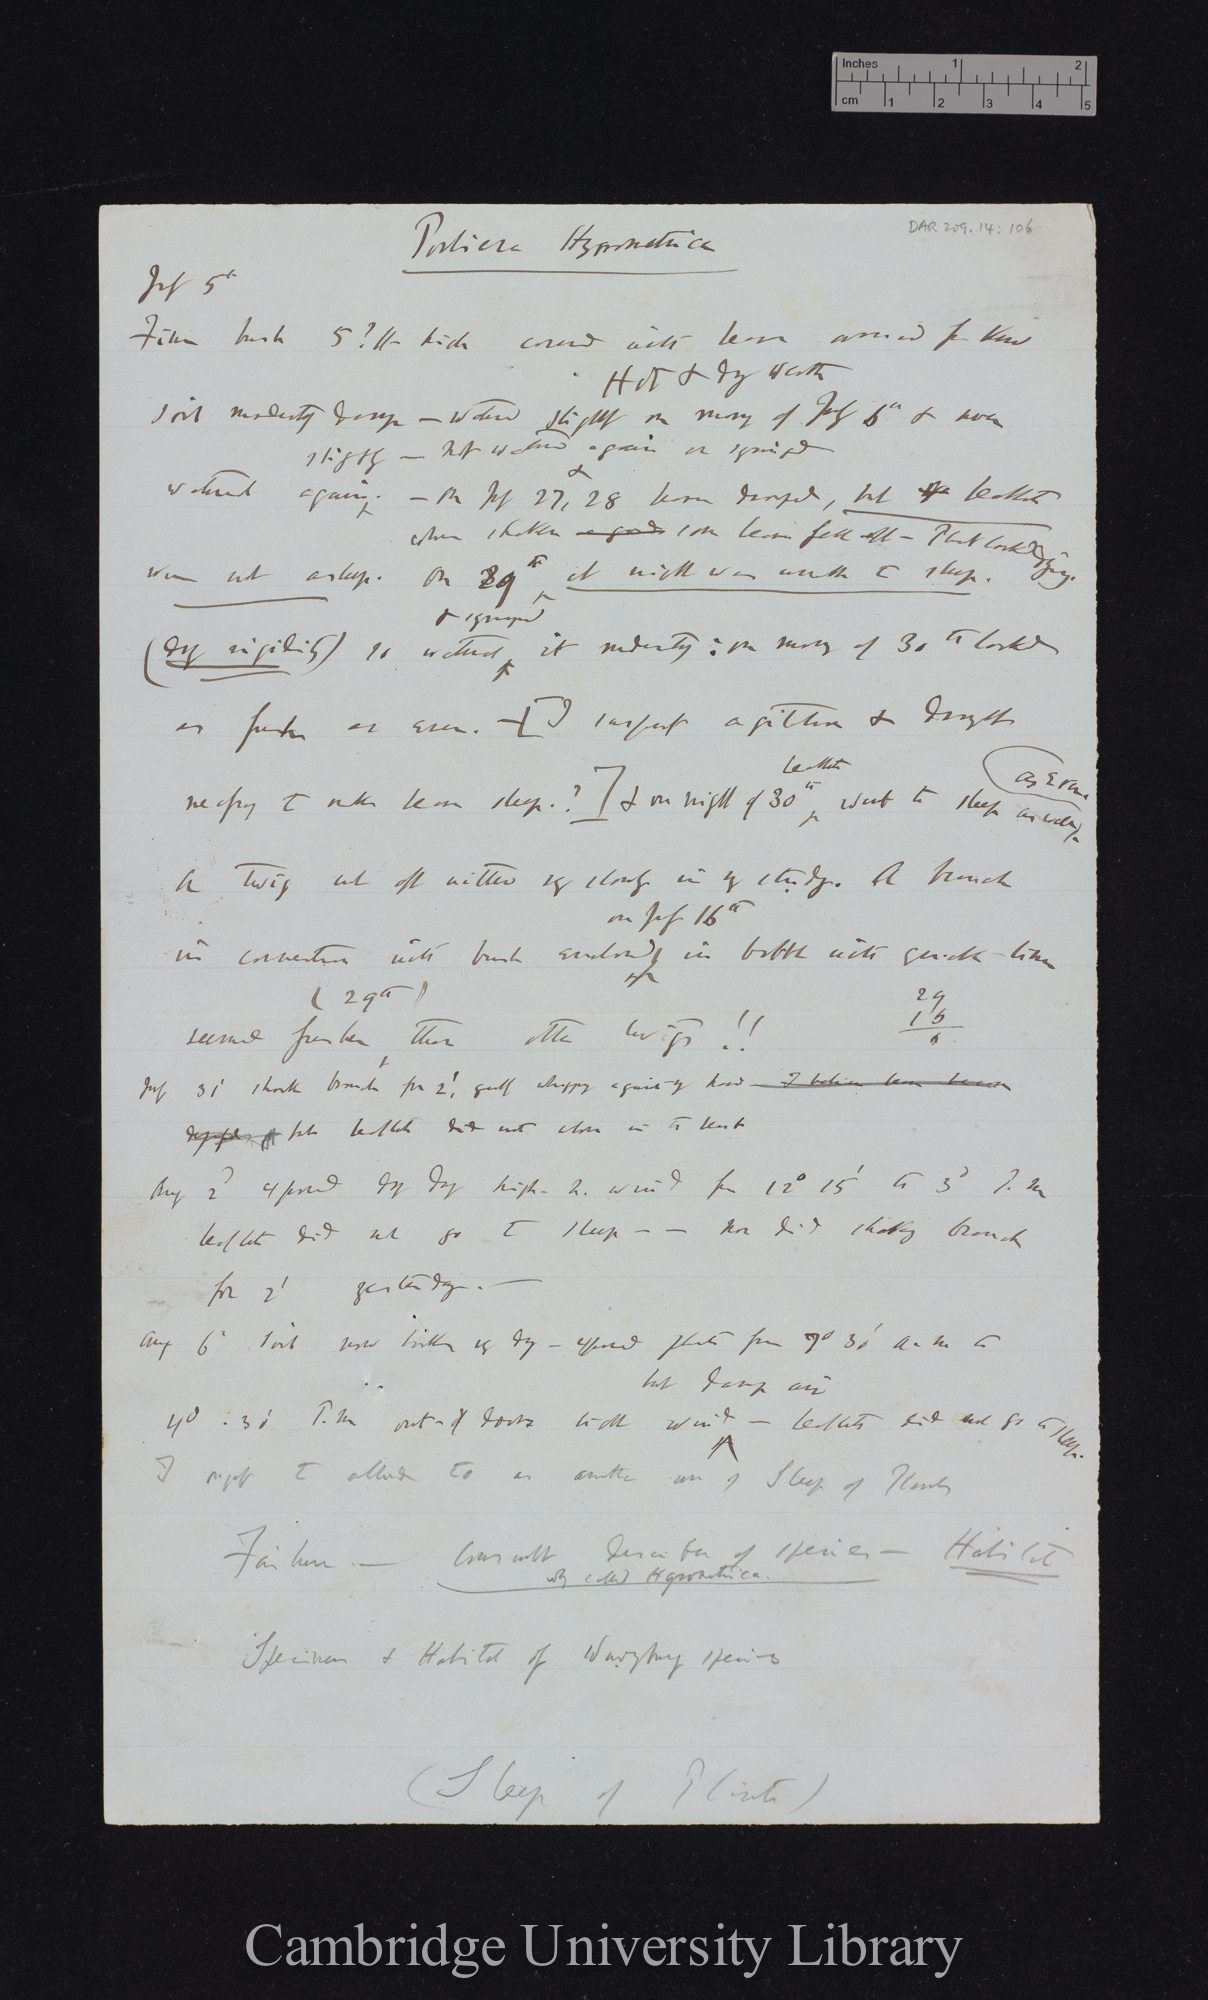 Inches 1 2
cm 1 2 3 4 5
DAR 209.14: 106
Porliera Hygrometrica
July 5th
Fine bush 5? ft high covered with leaves arrived from Kew
Hot & dry weather
soil moderately damp — watered slightly on morning of July 6th & never
slightly — not watered again or syringed
watered again. — On July 27, & 28 leaves drooped, but leaflets
when shaken some leaves fell off — Plant looked dying.
were not asleep. On 29th at night was unable to sleep.
& syringed
(dry rigidity) so watered it moderately: on morning of 30th looked
as fresh as ever. — [I suspect agitation & drought
leaflets as Evans
necessary to make leaves sleep.?] & on night of 30th went to sleep
A twig cut off withered very slowly in my study. A branch
on July 16th
in connection with bush enclosed in bottle with quick-lime
(29th)
29
16
seemed fresher than other twigs!!
July 31 shook branch for 2', gently whipping against my hand — I believe leaves
but leaflets did not close in the least
Aug 2d exposed dry day high N. wind from 12° 15' to 3° P.m
leaflets did not go to sleep — — nor did shaking branch
for 2' yesterday. —
Aug 6 Soil now very dry — exposed plant from 7° 30' a.m to
but damp air
4° . 30' P.m out-of doors high wind — leaflets did not go to sleep.
I ought to allude to as another case of Sleep of Plants
Fairburn — Consult describer of species — Habitat
why called Hygrometrica.
Specimen & Habitat of Wurzburg species
(Sleep of Plants)
Cambridge University Library